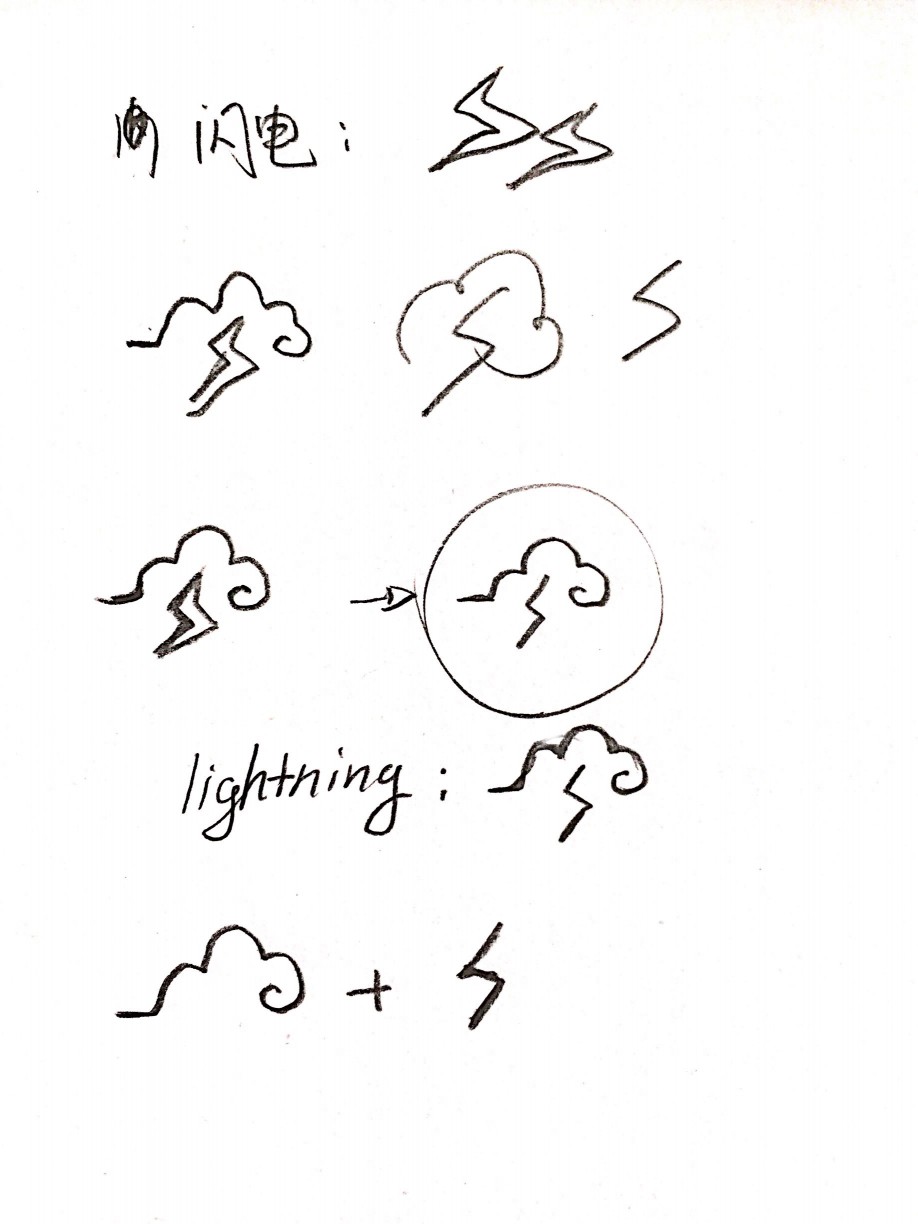 闪电:
lightning:
+